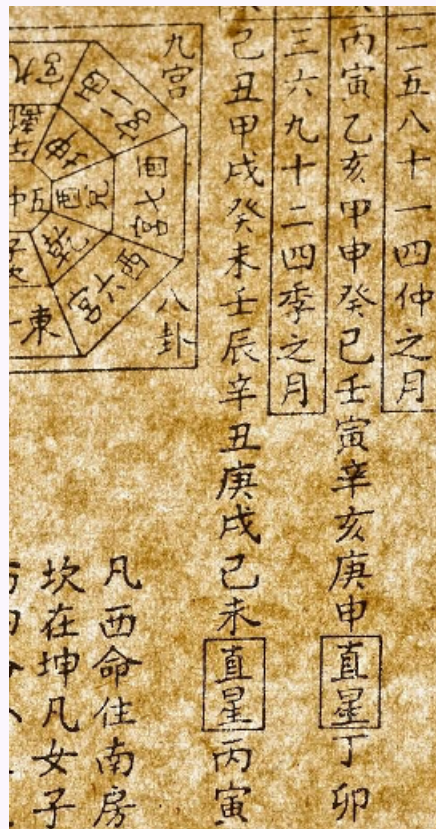 二五八十一四仲之月
丙寅乙亥甲申癸巳壬寅辛亥庚申直星丁卯
三六九十二四季之月
己丑甲戌癸未壬辰辛丑庚戌己未直星丙寅
九宫
八卦
西二宫
坤
西七宫
兑
西六宫
乾
東
凡西命住南房
坎在坤凡女子